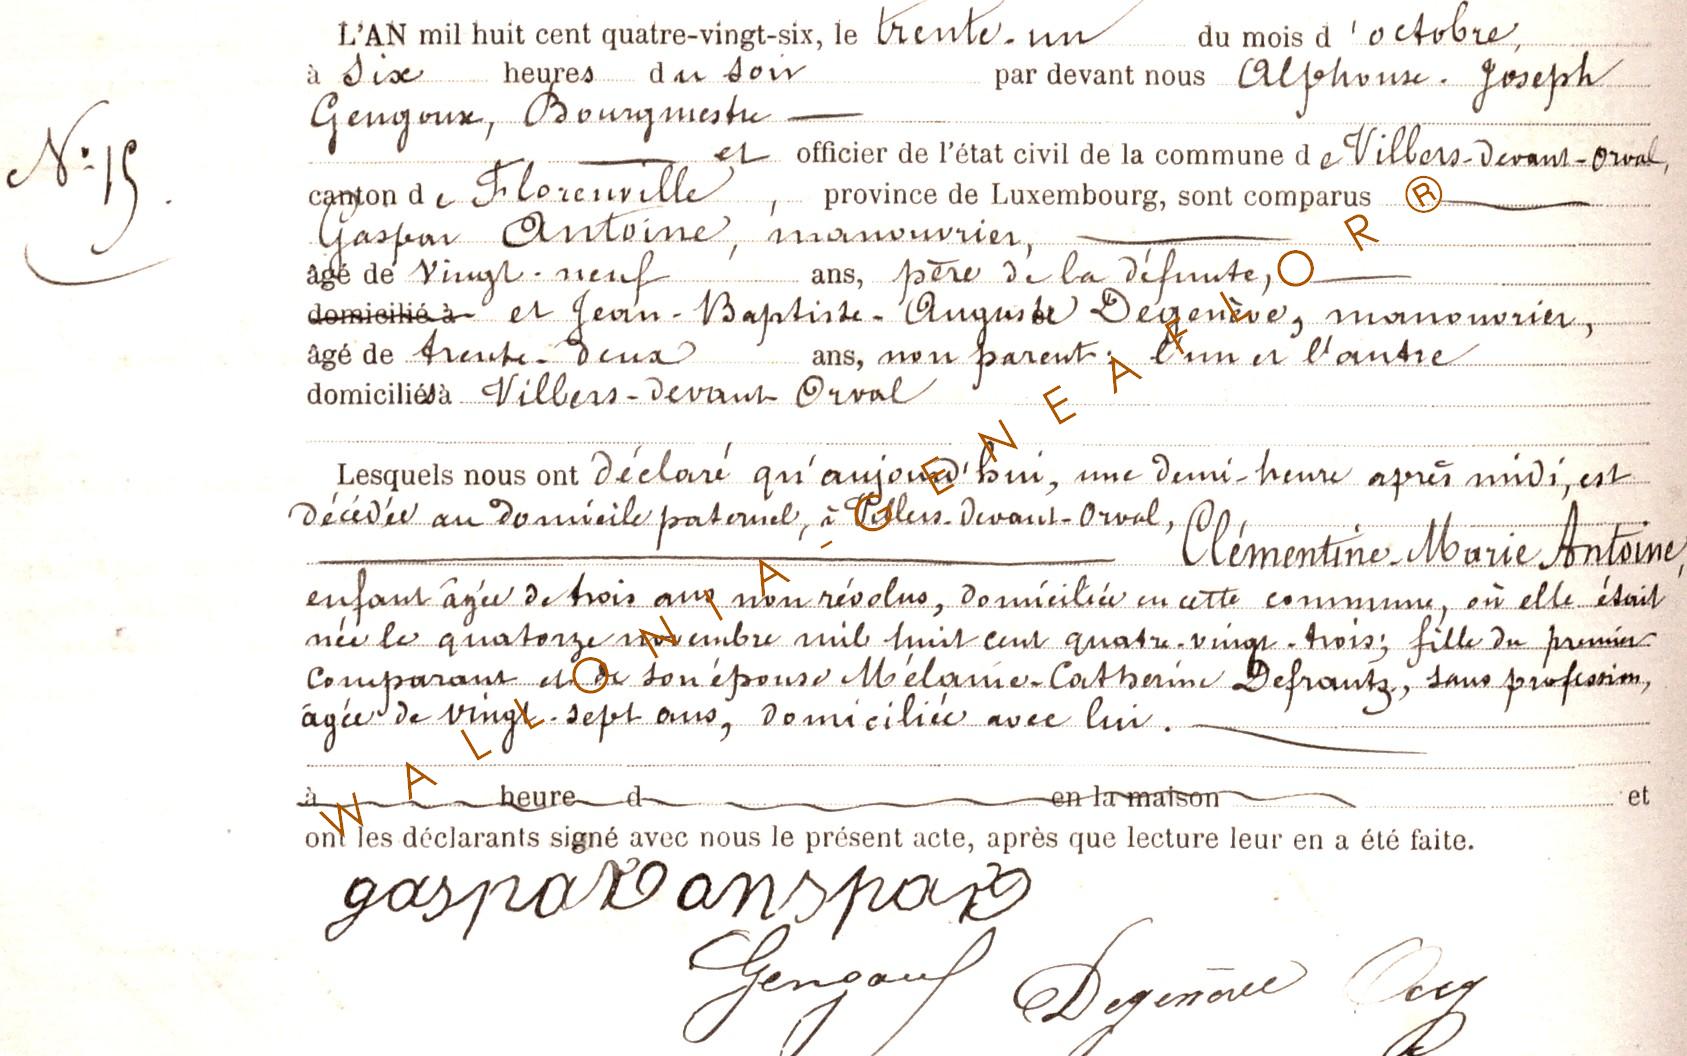 L'AN mil huit cent quatre-vingt-six, le trente-un du mois d'octobre,
à six heures du soir par devant nous Alphonse-Joseph
Gengoux, Bourgmestre
N° 15.
et officier de l'état civil de la commune de Villers-devant-Orval,
canton de Florenville, province de Luxembourg, sont comparus
Gaspar Antoine, manouvrier,
âgé de vingt-neuf ans, père de la défunte,
domicilié à et Jean-Baptiste-Auguste Degenève, manouvrier,
âgé de trente-deux ans, non parent; l'un et l'autre
domiciliés à Villers-devant-Orval
Lesquels nous ont déclaré qu'aujourd'hui, une demi-heure après midi, est
décédée au domicile paternel, à Villers-devant-Orval,
Clémentine-Marie Antoine,
enfant âgée de trois ans non révolus, domiciliée en cette commune, où elle était
née le quatorze novembre mil huit cent quatre-vingt-trois; fille du premier
comparant et de son épouse Mélanie-Catherine Defrantz, sans profession,
âgée de vingt-sept ans, domiciliée avec lui.
à heure d en la maison et
ont les déclarants signé avec nous le présent acte, après que lecture leur en a été faite.
gaspar
Gengoux Degenève
WALLONIA-GENEAFLOR®